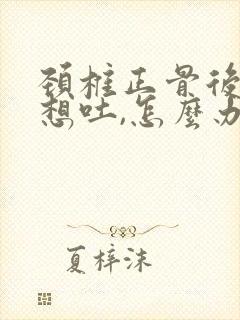 頚椎正骨後
想吐,怎麼办
夏梓沫